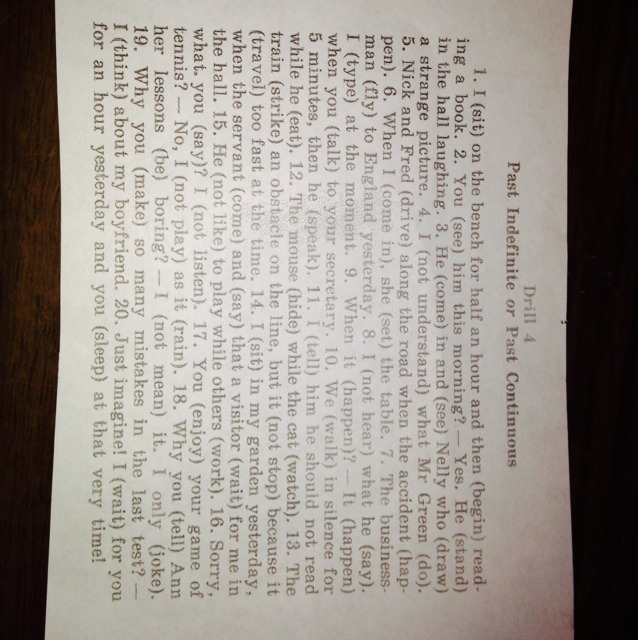 Drill 4
Past Indefinite or Past Continuous
1. I (sit) on the bench for half an hour and then (begin) read-
ing a book. 2. You (see) him this morning? — Yes. He (stand)
in the hall laughing. 3. He (come) in and (see) Nelly who (draw)
a strange picture. 4. I (not understand) what Mr Green (do).
5. Nick and Fred (drive) along the road when the accident (hap-
pen). 6. When I (come in), she (set) the table. 7. The business-
man (fly) to England yesterday. 8. I (not hear) what he (say).
I (type) at the moment. 9. When it (happen)? — It (happen)
when you (talk) to your secretary. 10. We (walk) in silence for
5 minutes, then he (speak). 11. I (tell) him he should not read
while he (eat). 12. The mouse (hide) while the cat (watch). 13. The
train (strike) an obstacle on the line, but it (not stop) because it
(travel) too fast at the time. 14. I (sit) in my garden yesterday,
when the servant (come) and (say) that a visitor (wait) for me in
the hall. 15. He (not like) to play while others (work). 16. Sorry,
what, you (say)? I (not listen). 17. You (enjoy) your game of
tennis? — No, I (not play) as it (rain). 18. Why you (tell) Ann
her lessons (be) boring? — I (not mean) it. I only (joke).
19. Why you (make) so many mistakes in the last test? —
I (think) about my boyfriend. 20. Just imagine! I (wait) for you
for an hour yesterday and you (sleep) at that very time!